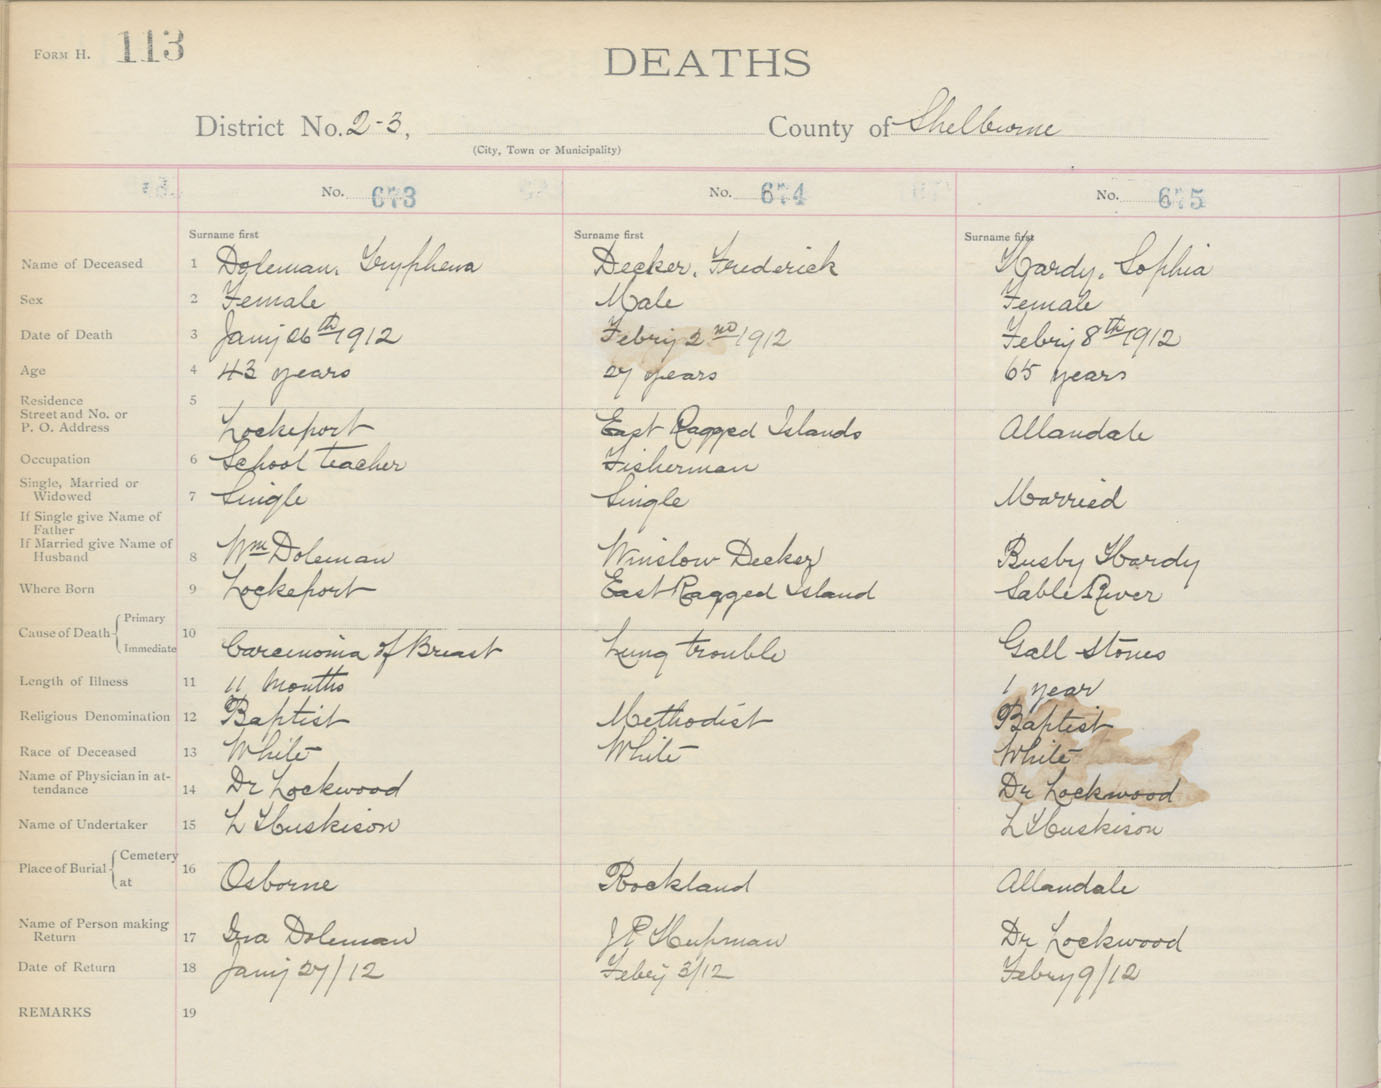 FORM H. 113
DEATHS
District No. 2-3, County of Shelburne
(City, Town or Municipality)
No. 673 No. 674 No. 675
Surname first Surname first Surname first
Name of Deceased 1 Doleman, Tryphena Decker, Frederick Hardy, Sophia
Sex 2 Female Male Female
Date of Death 3 Jany 26th 1912 Febry 2nd 1912 Febry 8th 1912
Age 4 43 years 27 years 65 years
Residence 5
Street and No. or
P. O. Address Lockeport East Ragged Islands Allandale
Occupation 6 School teacher Fisherman
Single, Married or
Widowed 7 Single Single Married
If Single give Name of
Father
If Married give Name of
Husband 8 Wm Doleman Winslow Decker Busby Hardy
Where Born 9 Lockeport East Ragged Island Sable River
Cause of Death Primary
10
Immediate Carcinoma of Breast Lung trouble Gall Stones
Length of Illness 11 11 Months 1 year
Religious Denomination 12 Baptist Methodist Baptist
Race of Deceased 13 White White White
Name of Physician in at-
tendance 14 Dr Lockwood Dr Lockwood
Name of Undertaker 15 L Huskison L Huskison
Place of Burial Cemetery
16
at Osborne Rockland Allandale
Name of Person making
Return 17 Ira Doleman J P Hupman Dr Lockwood
Date of Return 18 Jany 27/12 Febry 3/12 Febry 9/12
REMARKS 19